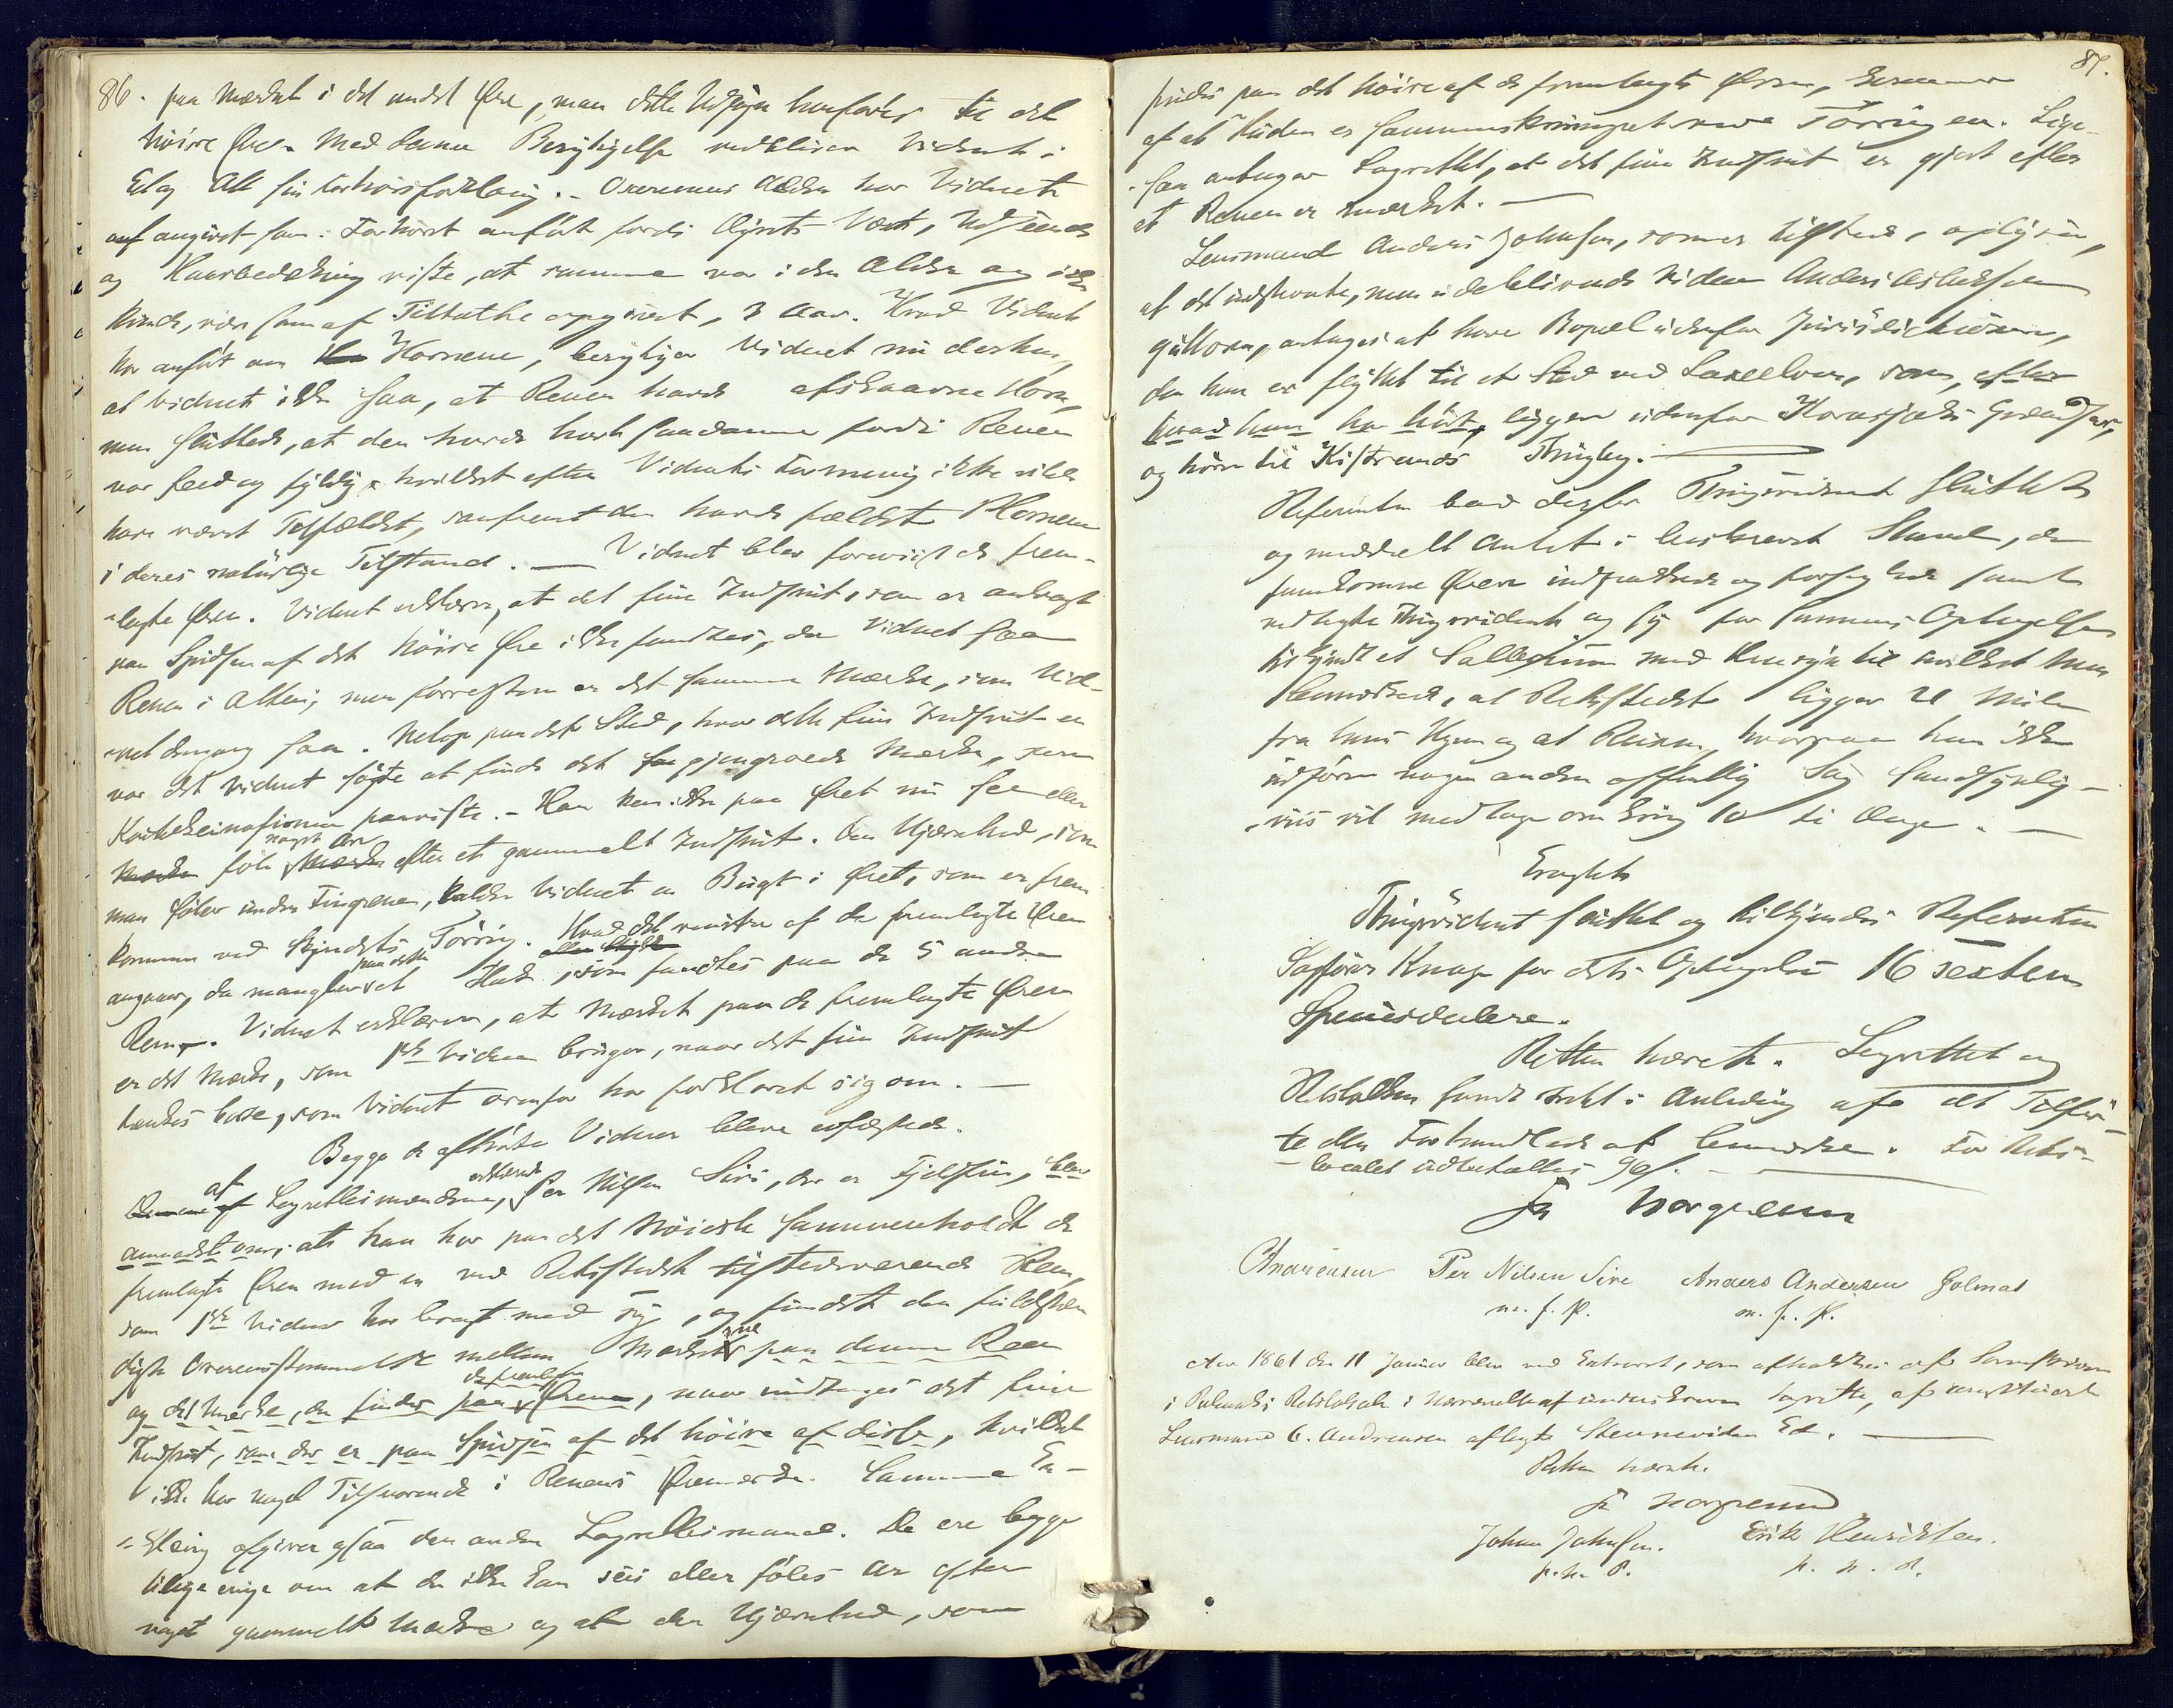 86. paa Mærket i det andet Øre, man dette Udsagn henføres til det
høire Øre. Med denne Berigtigelse vedbliver Vidnet i
Et og Alt sin Forhørsforklaring. Overensst Alder har Vidnet
angivet som i Forhøret anført fordi Dyrets Væxt, Udseende
og Haarbedækning viste, at samme var i den Alder og ikke
kunde, som af Tiltalte opgivet, 3 Aar. Hvad Vidnet
har anført om Hornene, berigtiger Vidnet nu derhen,
at Vidnet ikke saa, at Renen havde afskaarne Horn,
men sluttede, at den havde havt saadanne fordi Renen
var feed og fyldig, hvilket efter Vidnets Formening ikke vilde
have været Tilfældet, saafremt den havde fældet Hornene
i deres naturlige Tilstand. — Vidnet blev foreviist de frem-
lagte Øren. Vidnet erklærer, at det fine Indsnit, som er anbragt
paa Spidsen af det høire Øre ikke fandtes, da Vidnet saa
Renen i Alten, men forresten er det samme Mærke, som Vid-
net dengang saa. Netop paa det Sted, hvor dette fine Indsnit er
var det Vidnet søgte at finde det gjengroede Mærke, som
Koutokeinofinnen paaviste. - Han kan ikke paa Øret nu see eller
føle noget Ar efter et gammelt Indsnit. Den Ujævnhed, som
man føler under Fingrene, kalder Vidnet en Bugt i Øret, som er frem
kommen ved Skindets Tørring. Hvad det venstre af de fremlagte Øren
angaaer, da mangler paa dette et Hak, som fandtes paa de 5 andre
Rener. Vidnet erklærer, at Mærket paa de fremlagte Øren
er det Mærke, som 1ste Vidne bruger, naar det fine Indsnit
tænkes borte, som Vidnet ovenfor har forklaret sig om. —
Begge de afhørte Vidner bleve edfæstede.
af Lagrettesmændene, erklærede Per Nilsen Siri, der er Fjeldfin,
at han har paa det Nøieste sammenholdt de
fremlagte Øren med en ved Retsstedet tilstedeværende Ren,
som 1ste Vidne har bragt med sig, og fundet den fuldstæn
digste Overensstemmelse mellem Mærkerne paa denne Ren
og det Mærke, der findes paa de fremlagte Ørene, naar undtages det fine
Indsnit, som der er paa Spidsen af det høire af disse, hvilket
ikke har noget Tilsvarende i Renens Øremærke. Samme Er-
klæring afgiver ogsaa den anden Lagrettesmand. De ere begge
tillige enige om at der ikke kan sees eller føles Ar efter
noget gammelt Mærke og at den Ujævnhed, som
87.
findes paa det høire af de fremlagte Øren, kommer
af at Huden er sammenskrumpet ved Tørringen. Lige-
saa antager Lagrettet, at det fine Indsnit er gjort efter
at Renen er mærket. —
Lensmand Anders Johnsen, som er tilstede, oplyser,
at det indstevnte, men udeblivende Vidne Anders Aslaksen
Guttorm, antages at have Bopæl udenfor Jurisdictionen,
da han er flyttet til et Sted ved Laxelven, som, efter
hvad han har hørt, ligger udenfor Karasjoks Grændser,
og hører til Kistrands Thinglag. —
Referenten bad derfor Thingsvidnet sluttet
og meddeelt Actet i beskreven Stand, de
fremkomne Øren indpakkede og forseglede samt
vedlagte Thingsvidnet og sig for sammes Optagelse
tilkjendt et Sallarium med Hensyn til hvilket han
bemærkede, at Retsstedet ligger 21 Mile
fra hans Hjem og at Reisen, hvorpaa han ikke
udfører nogen anden offentlig Sag sandsynlig-
viis vil medtage omkring 10 ti Dage. —
Eragtet
Thingsvidnet sluttet og tilkjendes Referenten
Sagfører Knap for dets Optagelse 16 sexten
Speciesdalere.
Retten hævet. Lagrettet og
Retsfolkene fandt Intet i Anledning af det Tilfør-
te eller Forhandlede at bemærke. For Rets-
localet udbetaltes
Jr Norgreen
CAndreasen Per Nilsen Sire Anders Andersen Golmas
m. f. P. m. f. P.
Aar 1861 den 11 Januar blev ved Extraret, som afholdtes af Sorenskriveren
i Polmak i Retslokalet i Nærværelse af underskrevne Lagrette, af constitueret
Lensmand C. Andreasen aflagte Stevnevidne Ed. —
Retten hævet.
Jr Norgreen
Johan Johnsen. Erik Henriksen.
p. h. P. p. h. P.